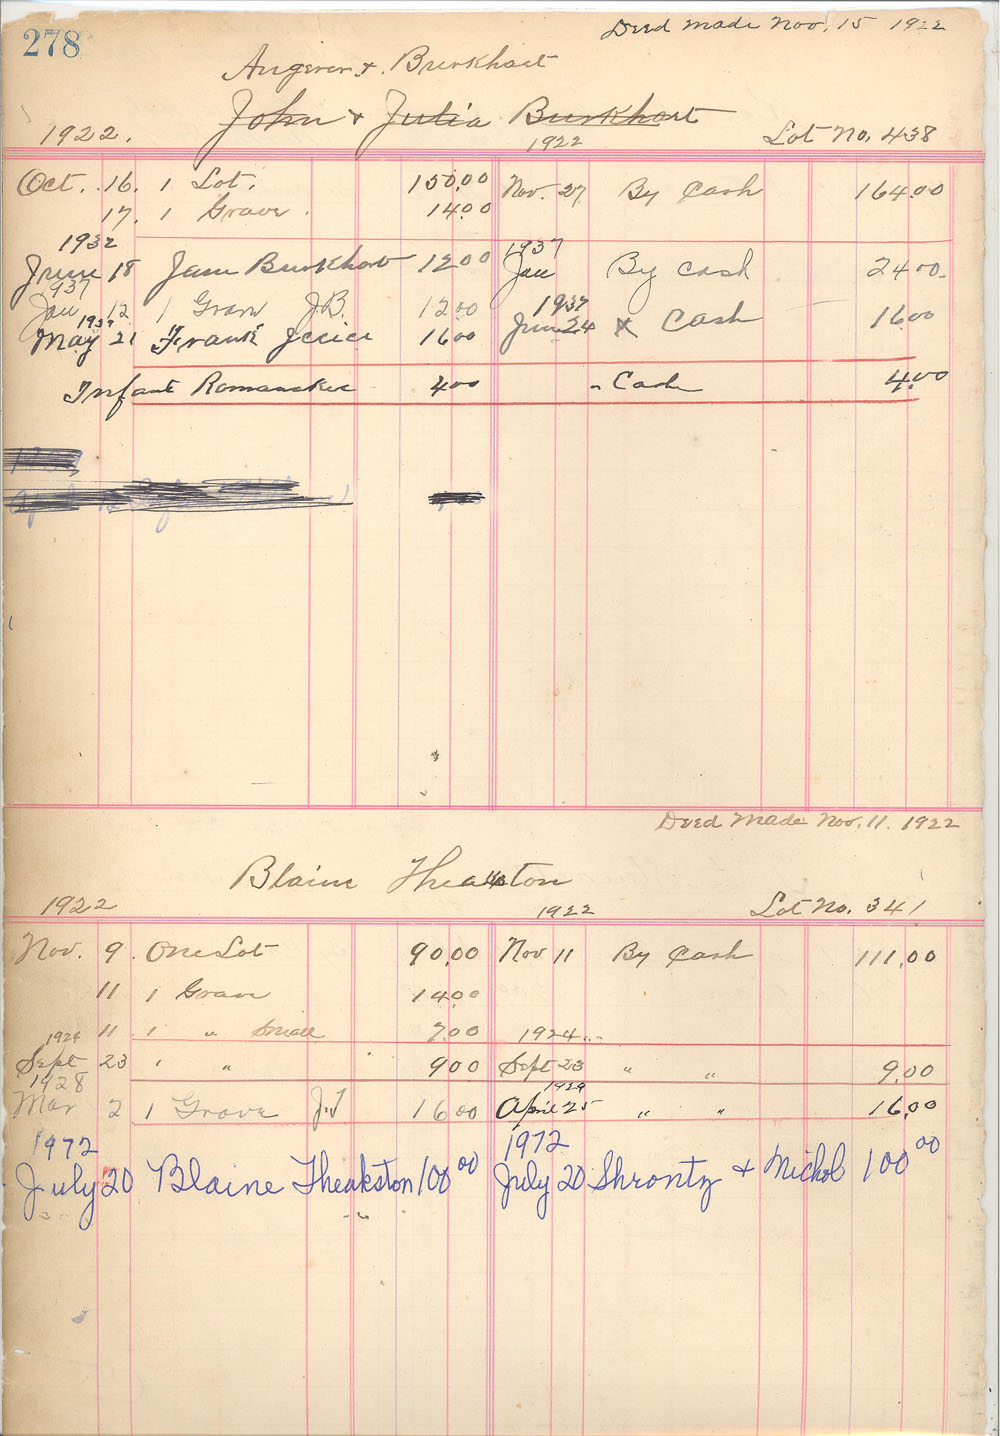 278
Deed Made Nov. 15 1922
Burkhart
John & Julia Burkhart
1922. 1922 Lot No. 438
Oct. 16. 1 Lot. 150.00 Nov. 27 By Cash 164.00
17. 1 Grave. 14.00
1932 1937
June 18 Burkhart 12.00 Jan By Cash 24.00
937
Jan 12 1 Grave J.B. 12.00 1937
May 21 Frank 16.00 June 24 Cash 16.00
Infant 4.00 " Cash 4.00
Deed Made Nov. 11. 1922
Blaine Theakston
1922 1922 Lot No. 341
Nov. 9. One Lot 90.00 Nov 11 By Cash 111.00
11 1 Grave 14.00
11 1 " Small 7.00 1924
1924
Sept 23 " " 9.00 Sept 23 " " 9.00
1928 1929
Mar 2 1 Grave J.T 16.00 April 25 " " 16.00
1972 1972
July 20 Blaine Theakston 100.00 July 20 Shrontz & Nichol 100.00